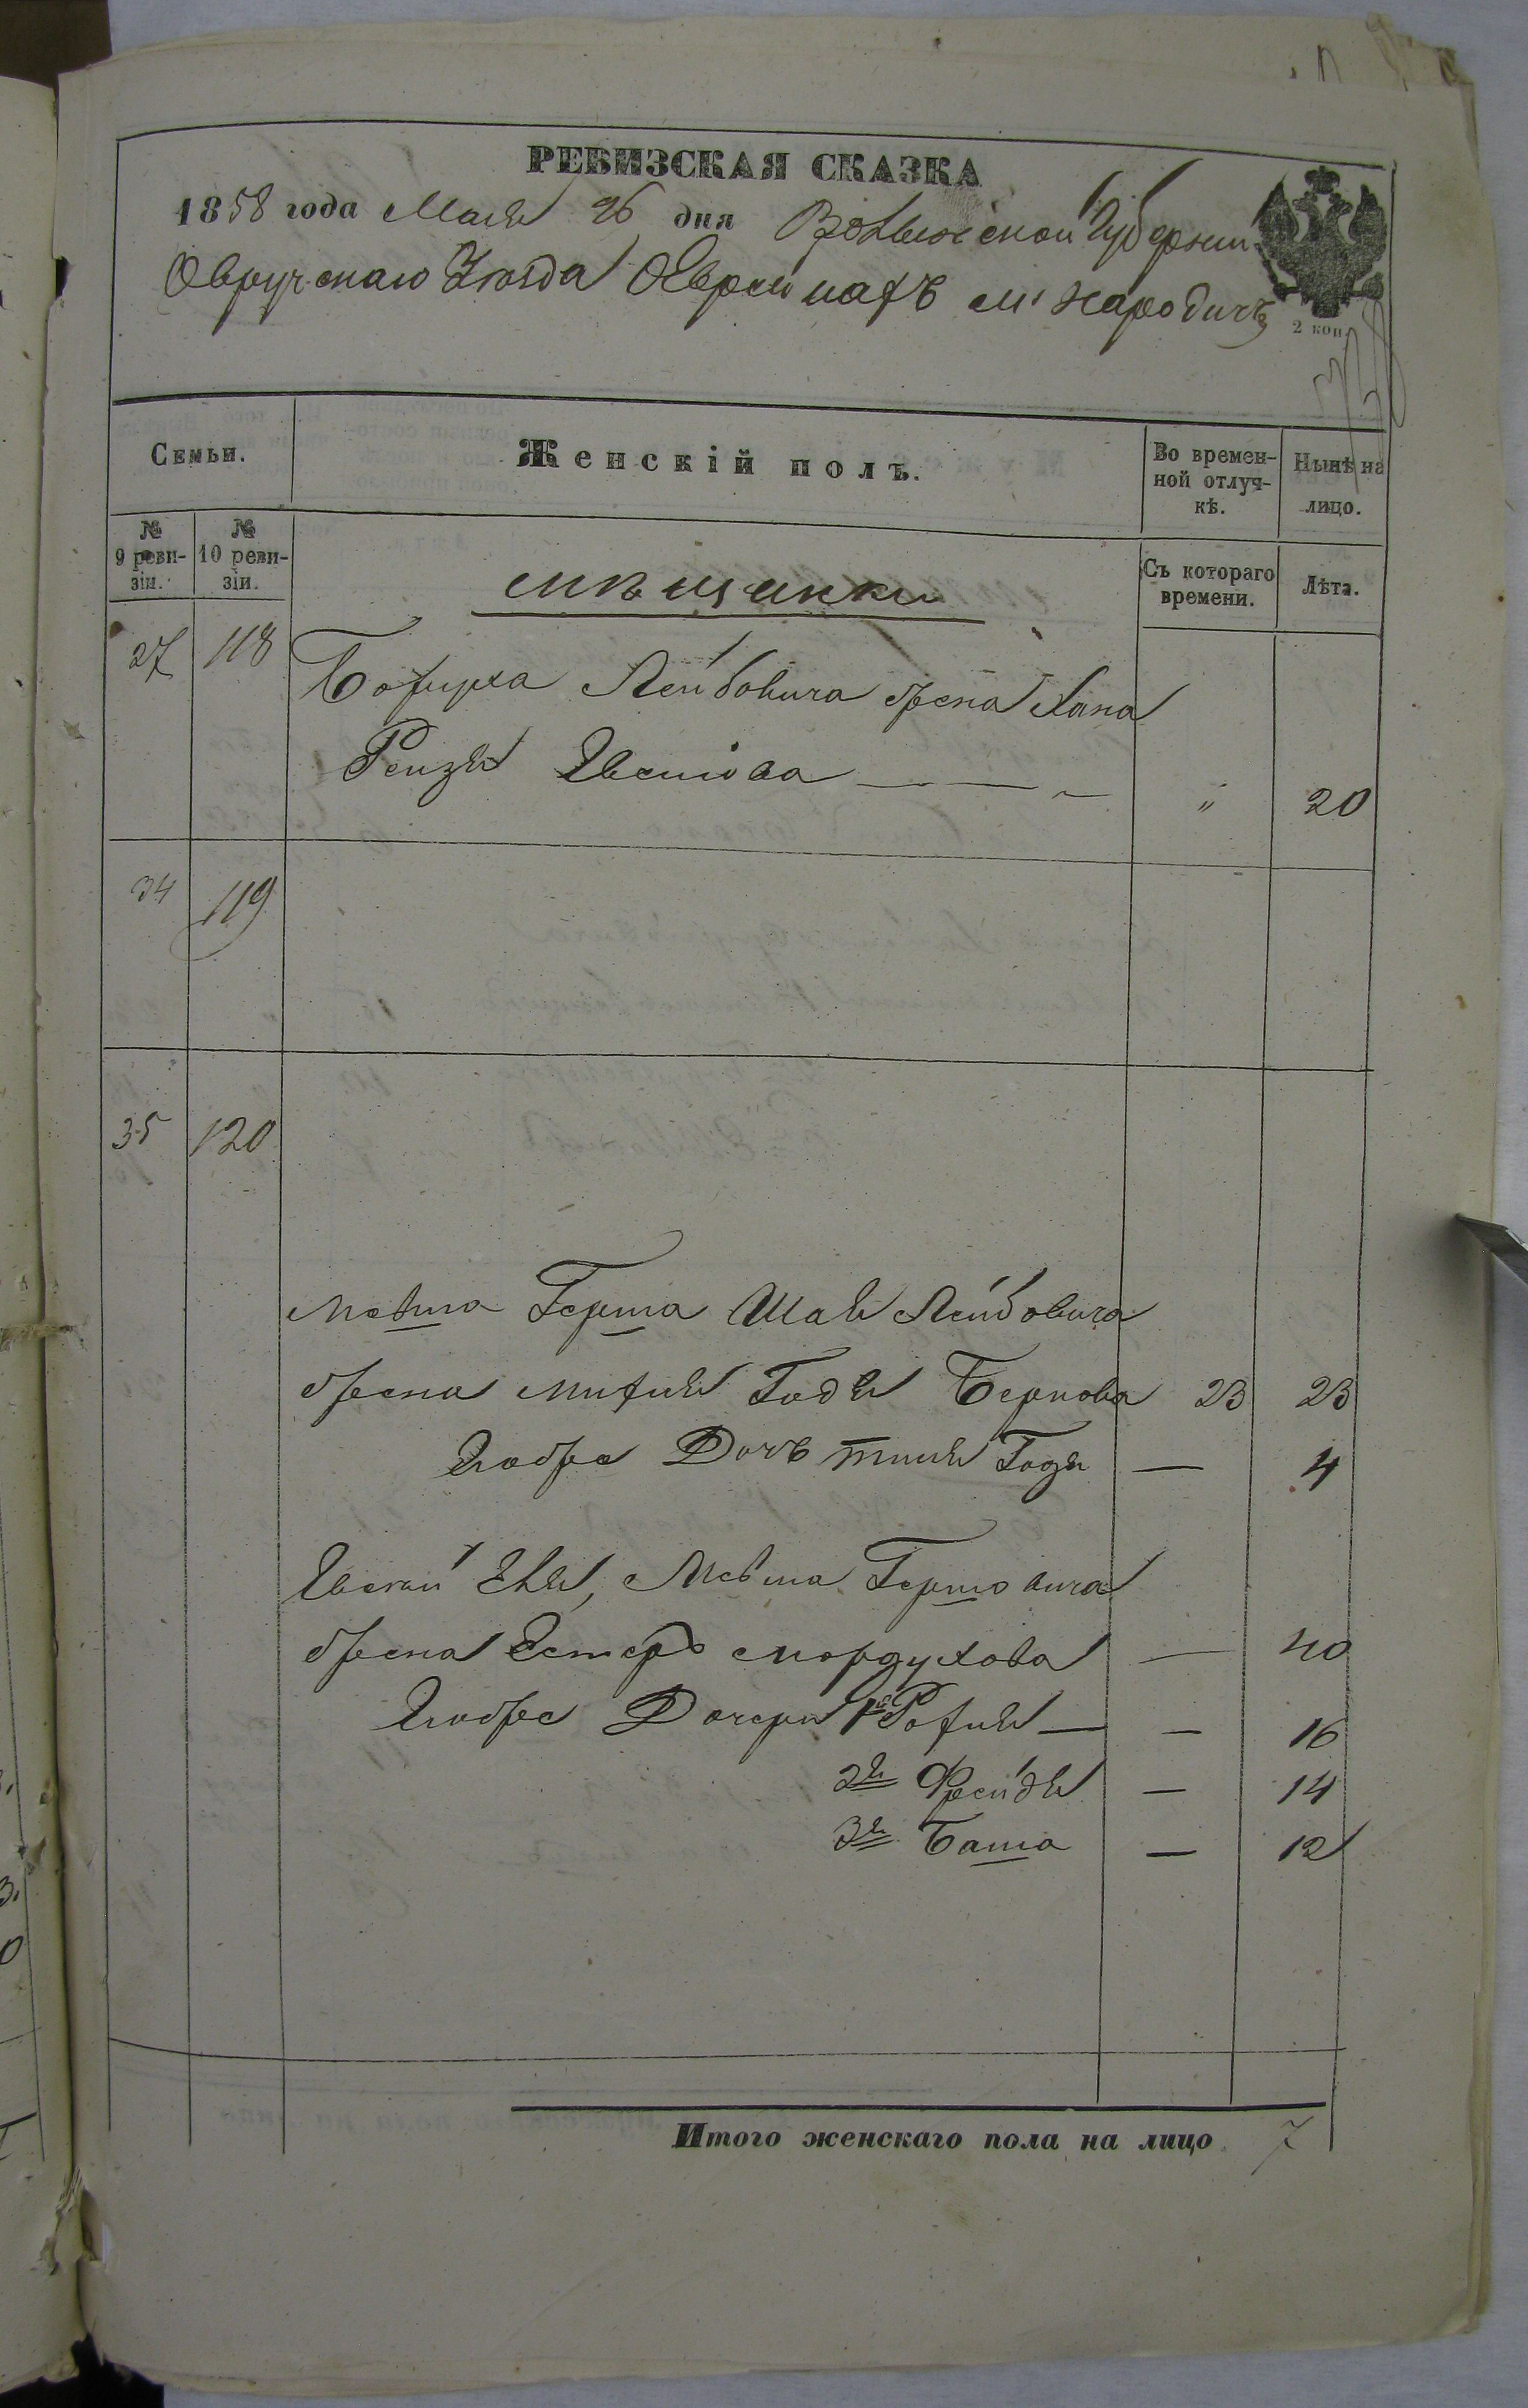 РЕВИЗСКАЯ СКАЗКА
1858 года Маія 26 дня Волынской Губерніи
Овручскаго Уѣзда О Евреи нахъ м. Народичъ
2 коп.
Семьи.
Женскій полъ.
Во времен-
ной отлуч-
кѣ.
Нынѣ на
лицо.
№
9 реви-
зіи.
№
10 реви-
зіи.
мѣщанки
Съ котораго
времени.
Лѣта.
27 118 Боруха Лейбовича жена Хана
Рейзя " 20
34 119
35 120
Мовша Герша Шая Лейбовича
жена Годя Беркова 23 23
Ихъ же Дочь Годя — 4
Мовша Гершовича
жена Естеръ Мордухова — 40
Ихъ же Дочери 1я — — 16
2я Фрейдя — 14
3я Баша — 12
Итого женскаго пола на лицо 7